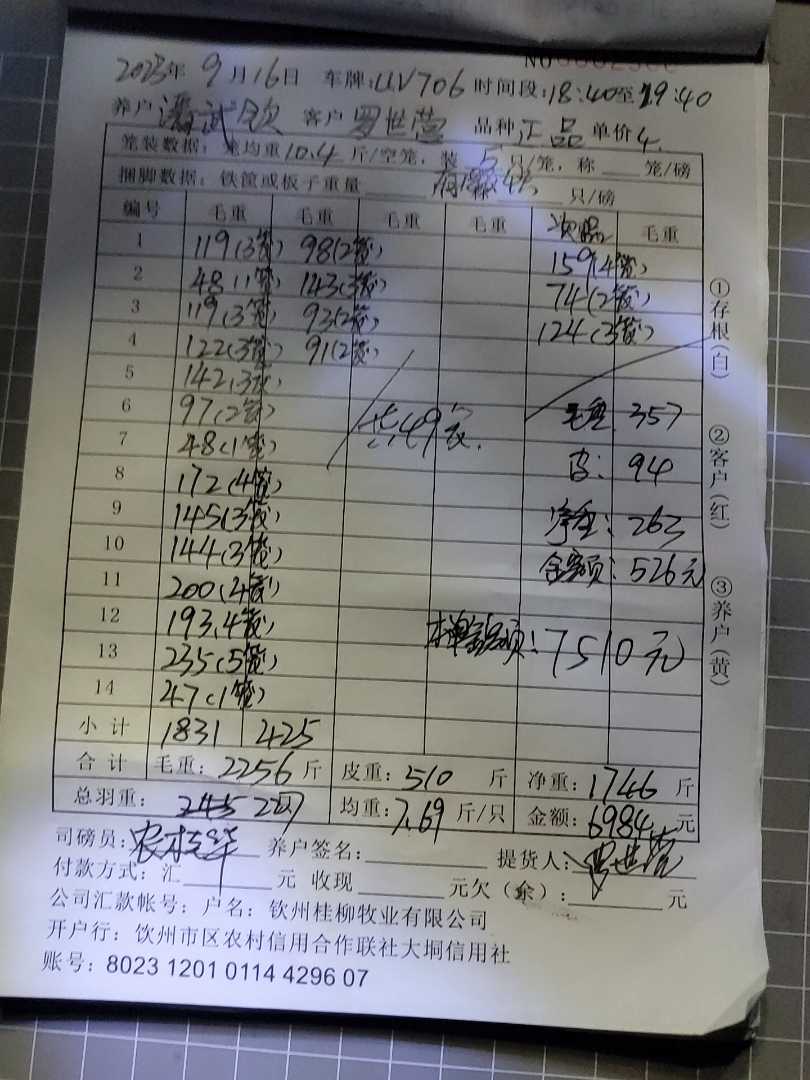 No
2023年 9月16日 车牌: UV706 时间段: 18:40至19:40
养户 潘武钦 客户 罗世营 品种 正品 单价 4.
笼装数据: 笼均重 10.4 斤/空笼, 装 5 只/笼, 称 笼/磅
捆脚数据: 铁筐或板子重量 只/磅
编号 毛重 毛重 毛重 毛重 次品 毛重
1 119(3笼) 98(2笼) 159(4笼)
2 48(1笼) 143(3笼) 74(2笼)
3 119(3笼) 93(2笼) 124(3笼)
4 122(3笼) 91(2笼)
5 142(3笼)
6 97(2笼) 共49笼. 毛重: 357
7 48(1笼)
8 172(4笼) 皮: 94
9 145(3笼) 净重: 263
10 144(3笼) 金额: 526元
11 200(4笼)
12 193(4笼) 本单总金额: 7510元
13 235(5笼)
14 47(1笼)
小计 1831 425
合计 毛重: 2256 斤 皮重: 510 斤 净重: 1746 斤
总羽重: 均重: 7.69 斤/只 金额: 6984 元
司磅员: 养户签名: 提货人: 罗世营
付款方式: 汇 元 收现 元欠(余): 元
公司汇款帐号: 户名: 钦州桂柳牧业有限公司
开户行: 钦州市区农村信用合作联社大垌信用社
账号: 8023 1201 0114 4296 07
①存根(白)
②客户(红)
③养户(黄)